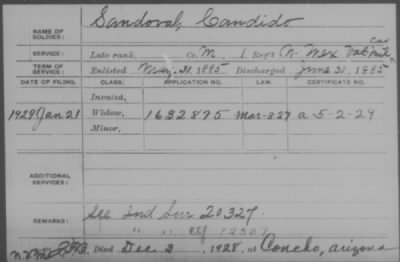 Sandoval, Candido
NAME OF SOLDIER:
Cav
SERVICE: Late rank, Co. M, 1 Reg't N. Mex Vol
TERM OF SERVICE: Enlisted May 31, 1885 Discharged June 30, 1885
DATE OF FILING. CLASS. APPLICATION NO. LAW. CERTIFICATE NO.
Invalid,
1929 Jan 21 Widow, 1632875 Mar-3-27 a 5-2-29
Minor,
ADDITIONAL SERVICES:
REMARKS: See Ind Sur 20327.
" " 12507
Died Dec 3, 1928, at Concho, Arizona